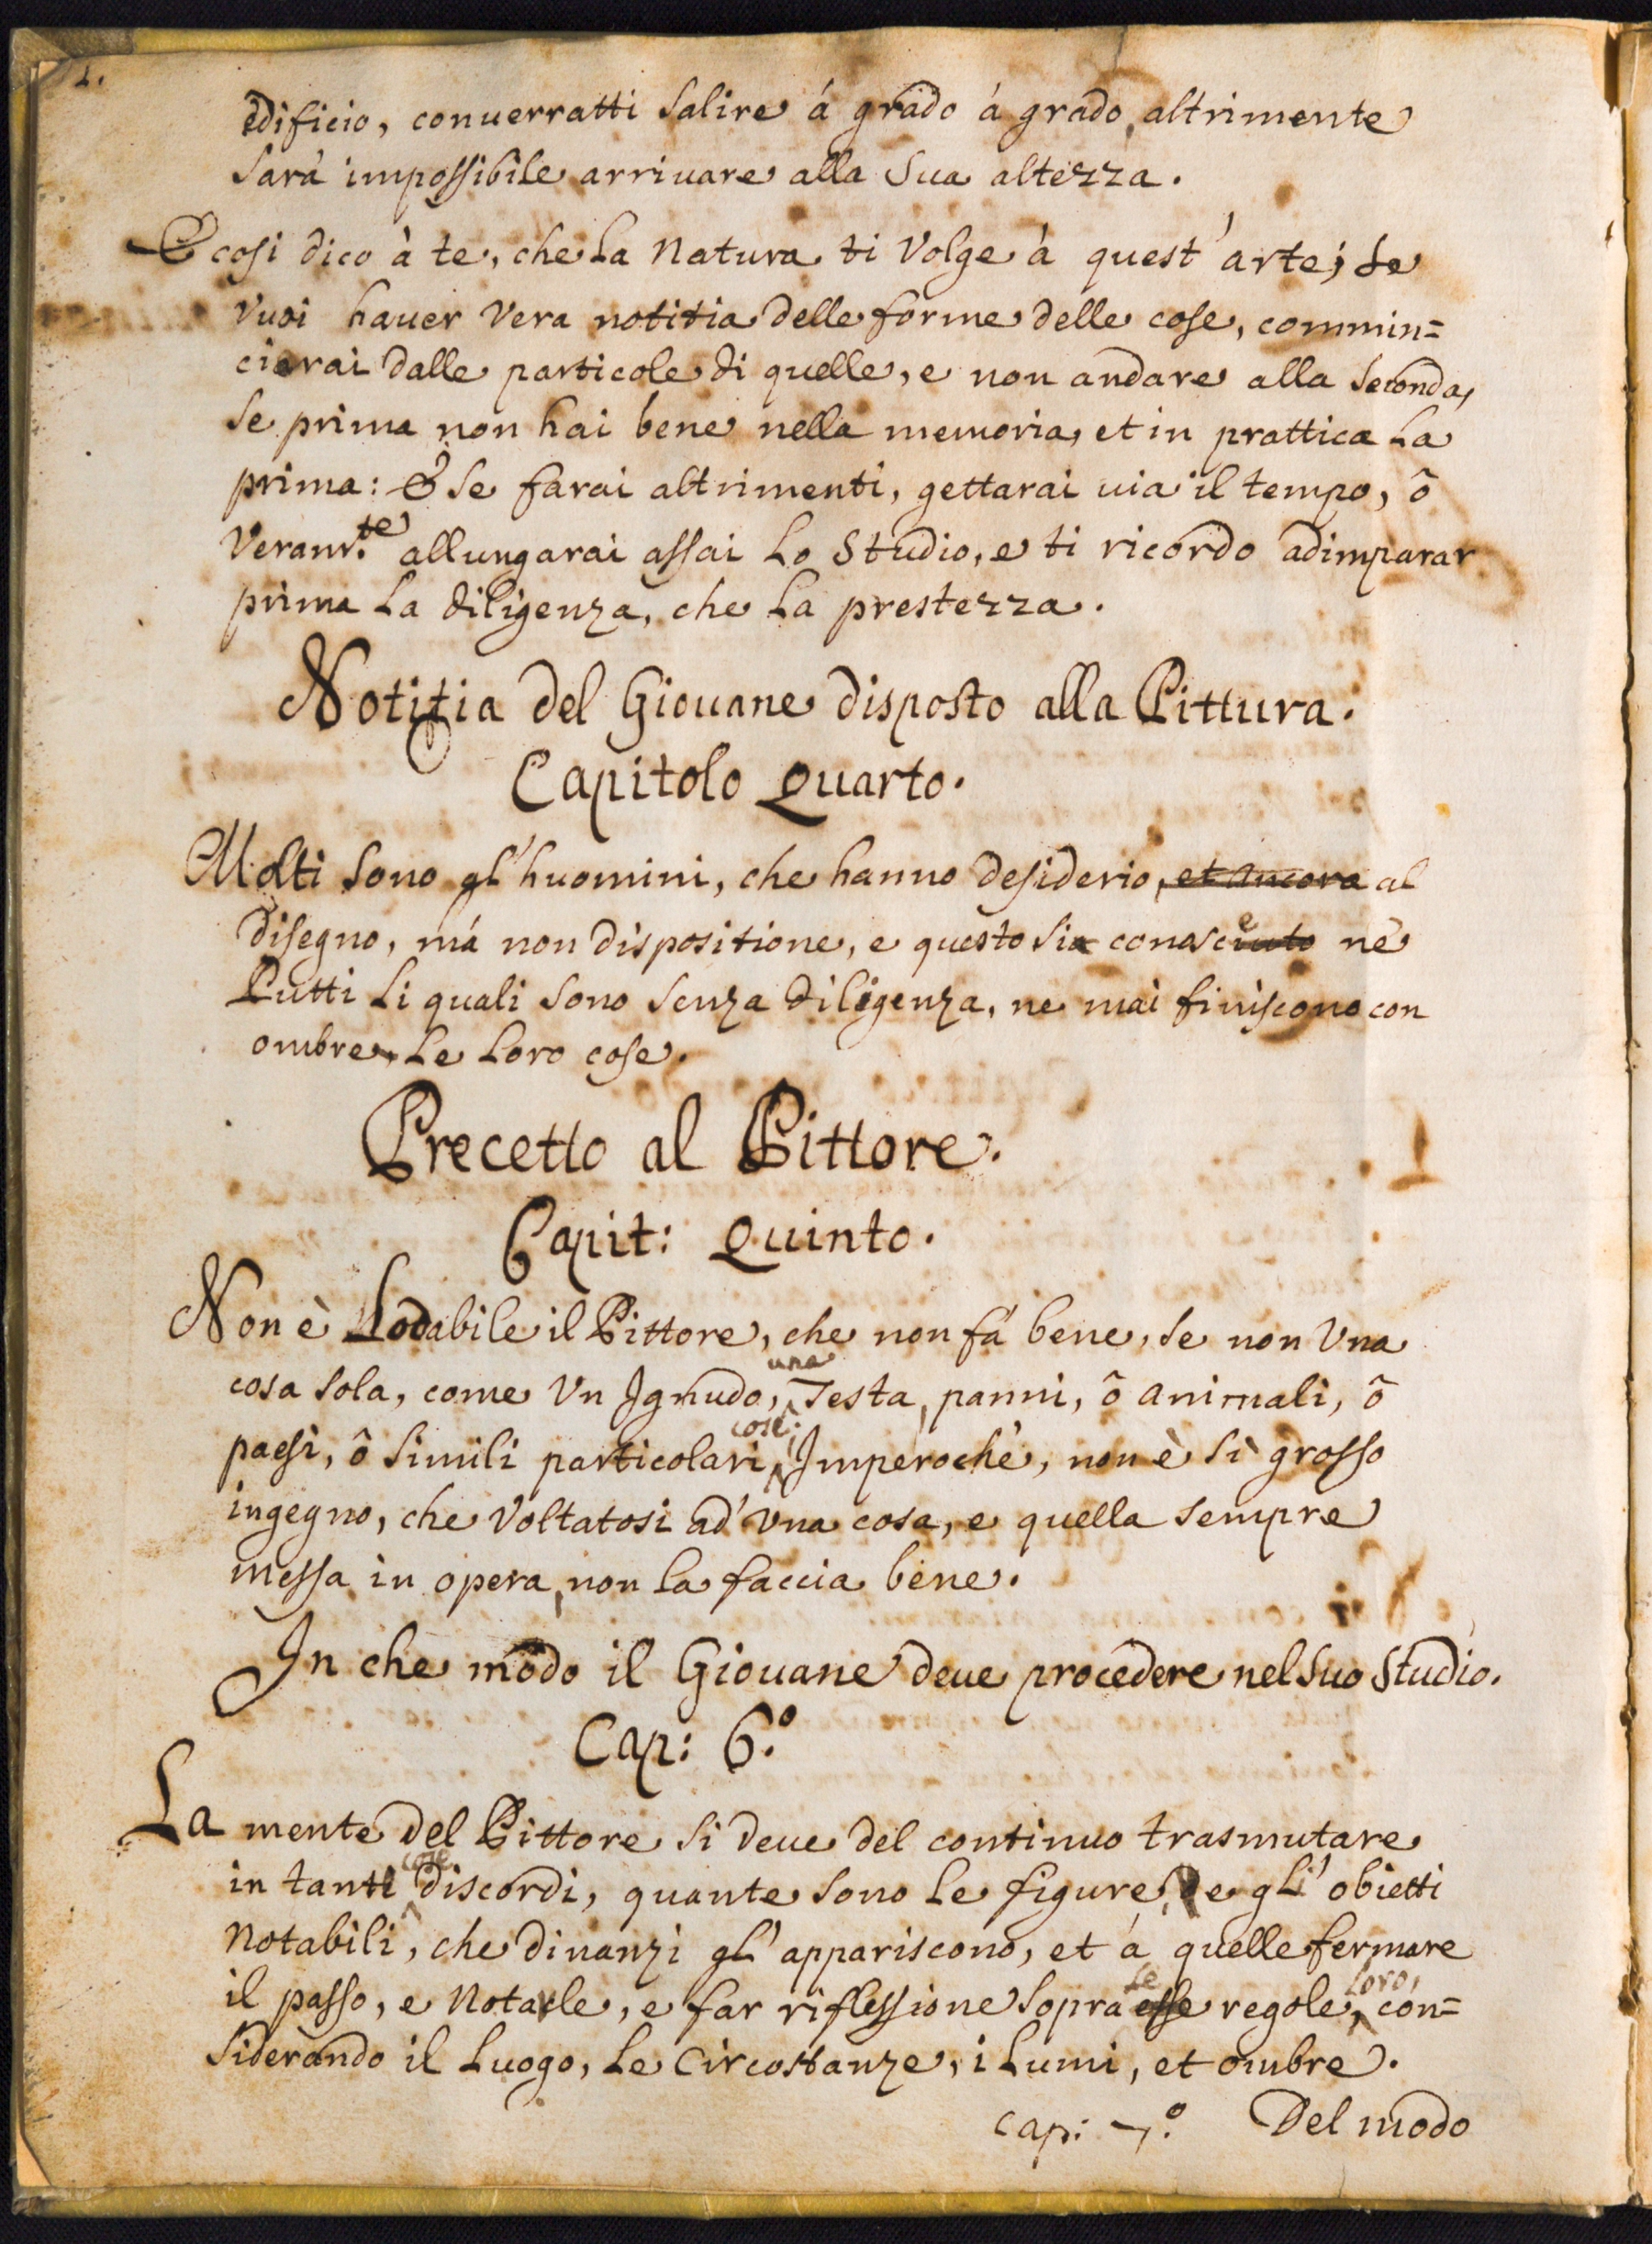 2.
edificio, conuerratti salire á grado á grado, altrimente
sarà impossibile arriuare alla sua altezza.
E cosi dico à te, che la Natura ti Volge à quest'arte; se
vuoi hauer Vera notitia delle forme delle cose, commin=
ciarai dalle particole di quelle, e non andare alla seconda,
se prima non hai bene nella memoria, et in prattica la
prima: E se farai altrimenti, gettarai uia il tempo, ô
Veram.te allungarai assai lo studio, e ti ricordo adimparar
prima la diligenza, che la prestezza.
Notitia del Giouane disposto alla Pittura.
Capitolo Quarto.
Molti sono gl'huomini, che hanno desiderio, et ancora al
disegno, má non dispositione, e questo sia conosciuto né
Putti li quali sono senza diligenza, ne mai finiscono con
ombre, le loro cose.
Precetto al Pittore.
Capit: Quinto.
Non è Lodabile il Pittore, che non fá bene, se non Vna
cosa sola, come Vn Ignudo, una Testa, panni, ô animali, ô
paesi, ô simili particolari cose; Imperoché, non è sì grosso
ingegno, che Voltatosi ad' Vna cosa, e quella sempre
messa in opera, non la faccia bene.
In che modo il Giouane deue procedere nel suo studio.
Cap: 6.º
La mente del Pittore si deue del continuo trasmutare
in tanti cose discordi, quante sono le figure, e gli'obietti
Notabili, che dinanzi gl'appariscono, et á quelle fermare
il passo, e Notarle, e far riflessione sopra esse le regole loro, con=
siderando il luogo, le Circostanze, i lumi, et ombre.
cap: 7.º Del modo